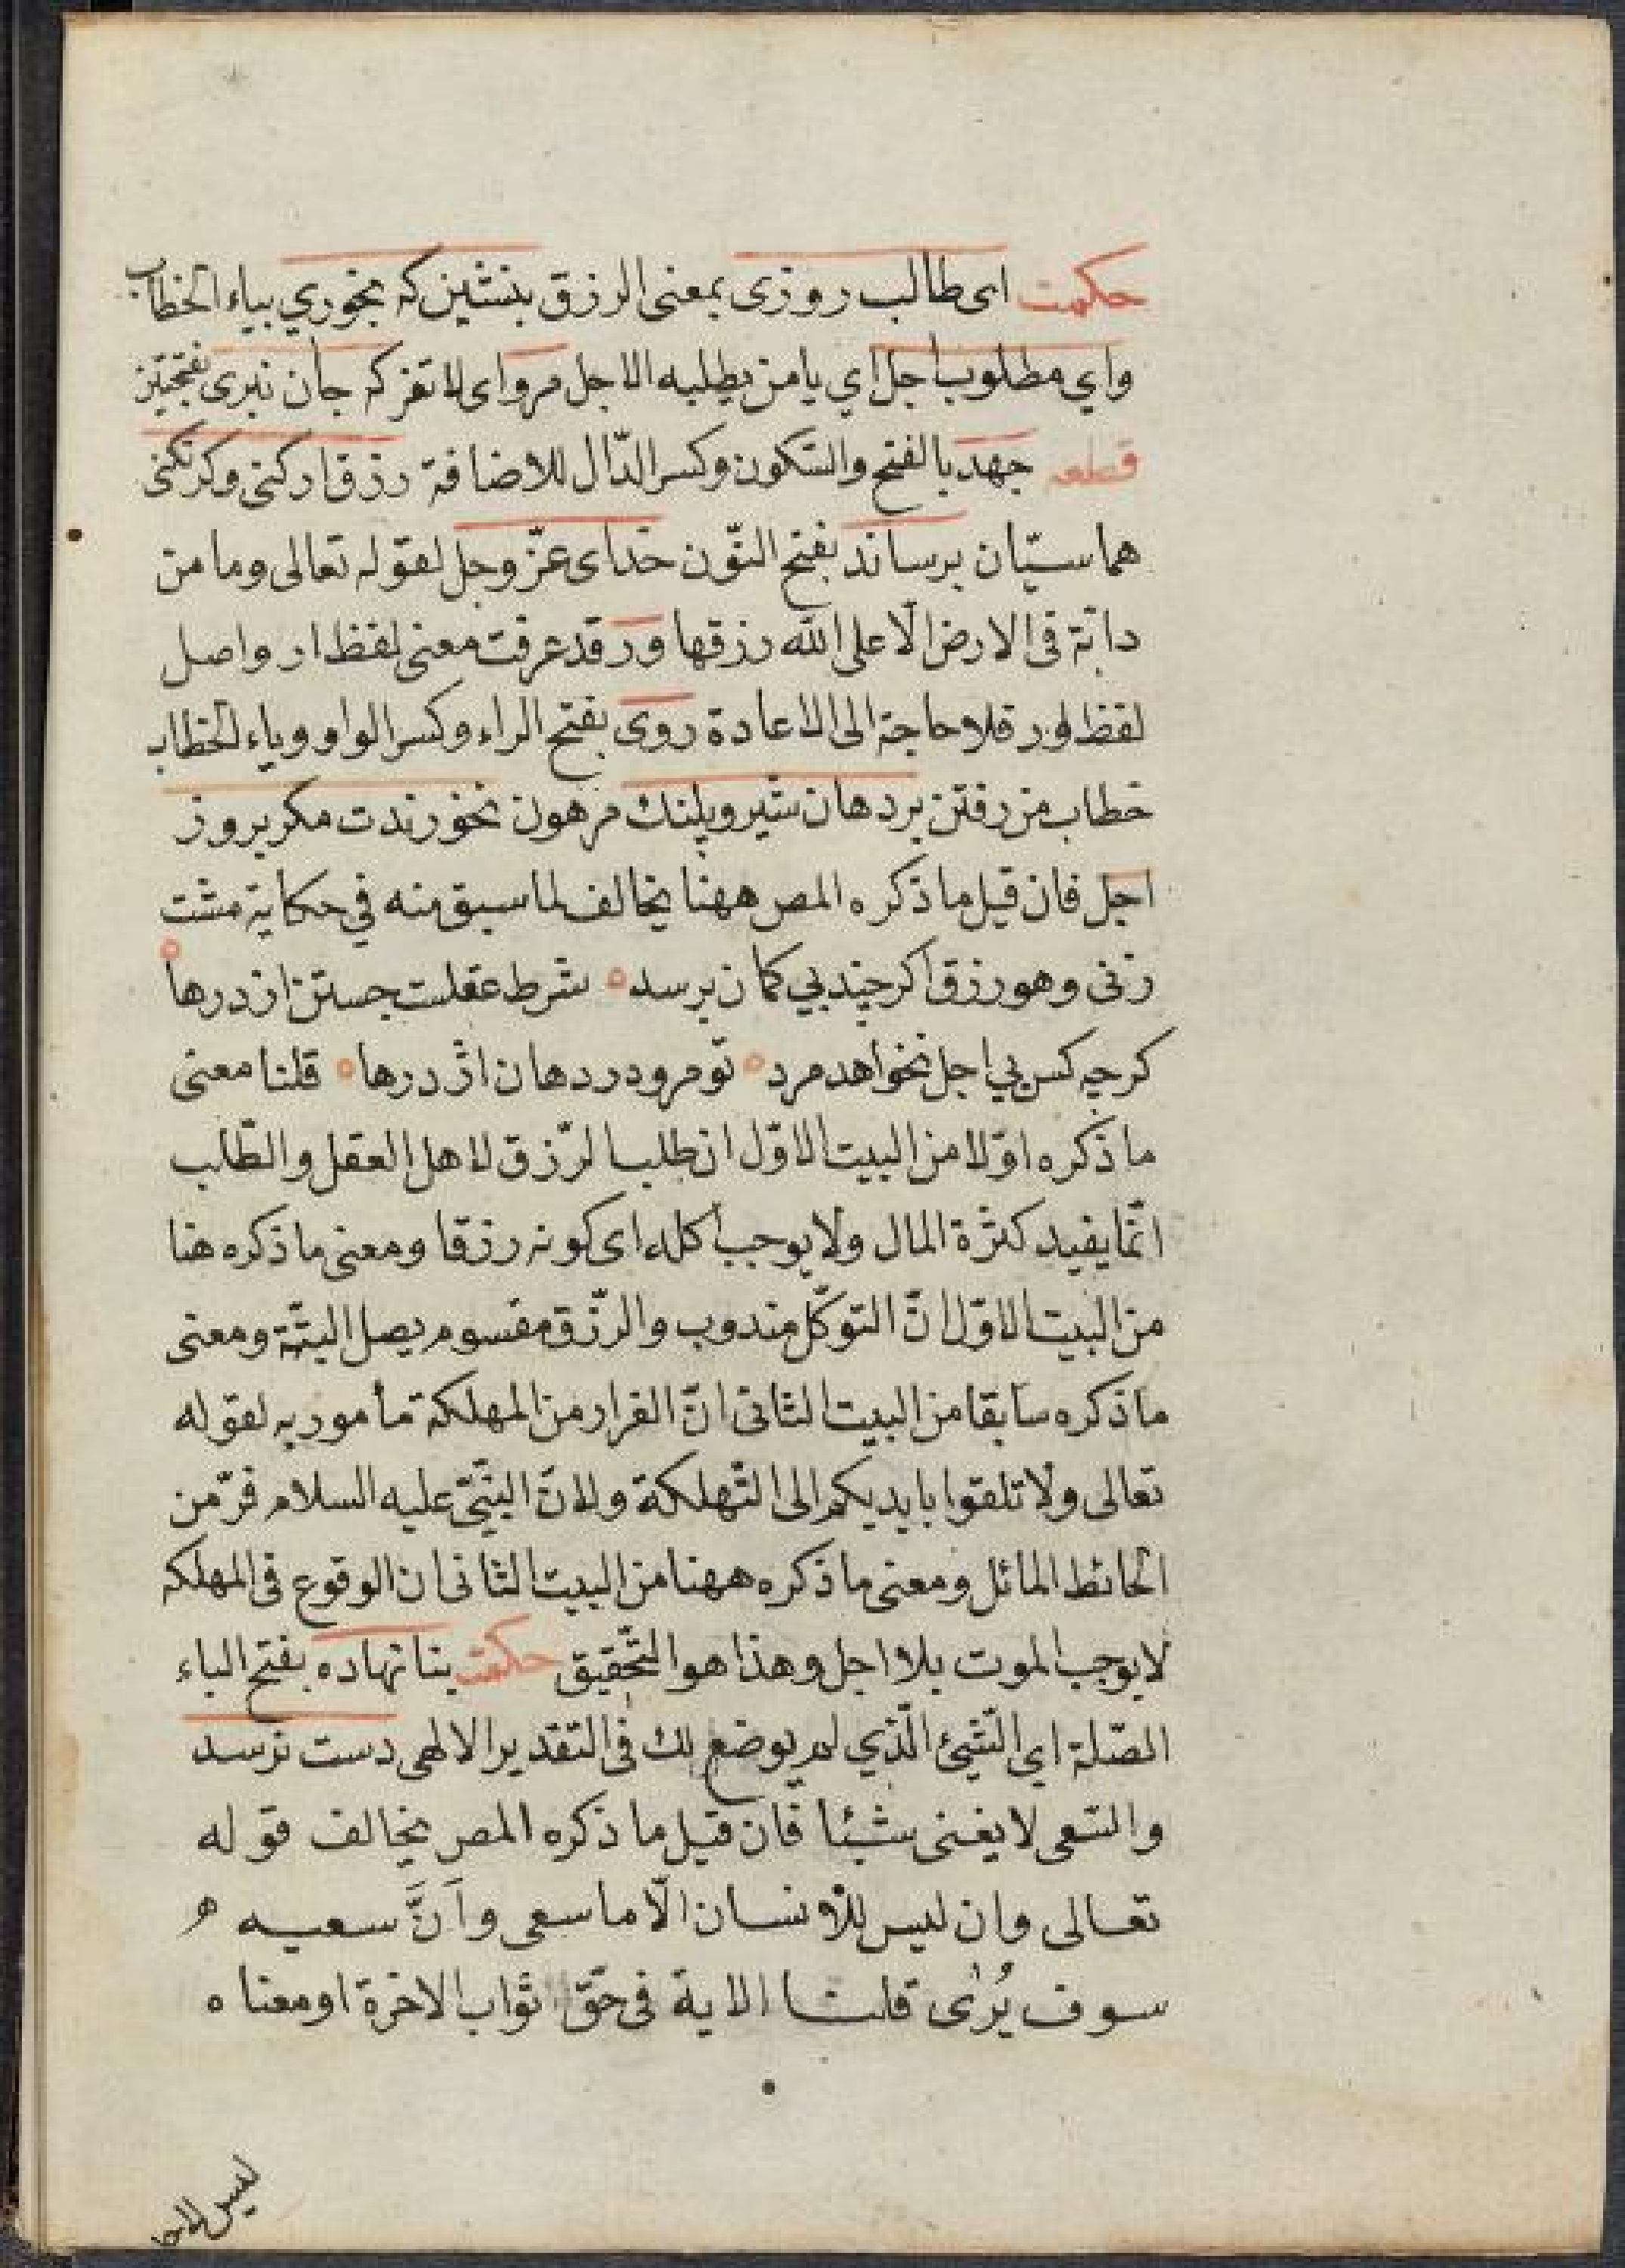 حكمت اى طالب روزى بمعنى الرزق بنشين كه بخوري بياء الخطاب
واي مطلوب اجل اي يا من يطلبه الاجل مرو اى لا تفر كه جان نبرى بفتحتين
قطعه جهد بالفتح والسّكون وكسر الدّال للاضافة رزق اركنى وكرنكنى
هما سيّان برساند بفتح النّون خداى عزّ وجل لقوله تعالى وما من
دابّة فى الارض الّا على الله رزقها ور قد عرفت معنى لفظ ار واصل
لفظ ور فلا حاجة الى الاعادة روى بفتح الراء وكسر الواو وياء الخطاب
خطاب من رفتن بردهان شير وپلنك مرهون نخورندت مكر بروز
اجل فان قيل ما ذكره المص ههنا يخالف لما سبق منه في حكاية مشت
زنى وهو رزق اكر چند بي كمان برسد ه شرط عقلست جستن از درها ه
كرچه كس بي اجل نخواهد مرد ه تو مرو در دهان اژدرها ه قلنا معنى
ما ذكره اوّلا من البيت الاوّل ان طلب الرّزق لاهل العقل والطّلب
انّما يفيد كثرة المال ولا يوجب اكله اى كونه رزقا ومعنى ما ذكره هنا
من البيت الاوّل انّ التوكّل مندوب والرّزق مقسوم يصل البتّة ومعنى
ما ذكره سابقا من البيت الثانى انّ الفرار من المهلكة مأمور به لقوله
تعالى ولا تلقوا بايديكم الى التّهلكة ولانّ النبىّ عليه السلام فرّ من
الحائط المائل ومعنى ما ذكره ههنا من البيت الثانى ان الوقوع فى المهلكه
لا يوجب الموت بلا اجل وهذا هو التّحقيق حكمت بنا نهاده بفتح الباء
الصّلة اي الشّيئ الّذي لم يوضع لك فى التقدير الالهى دست نرسد
والسّعى لا يغنى شيئا فان قيل ما ذكره المص يخالف قوله
تعالى وان ليس للأنسان الّا ما سعى وَاَنَّ سعيه
سوف يُرٰى قلنا الاية فى حقّ ثواب الاخرة او معناه
ليس للانسا